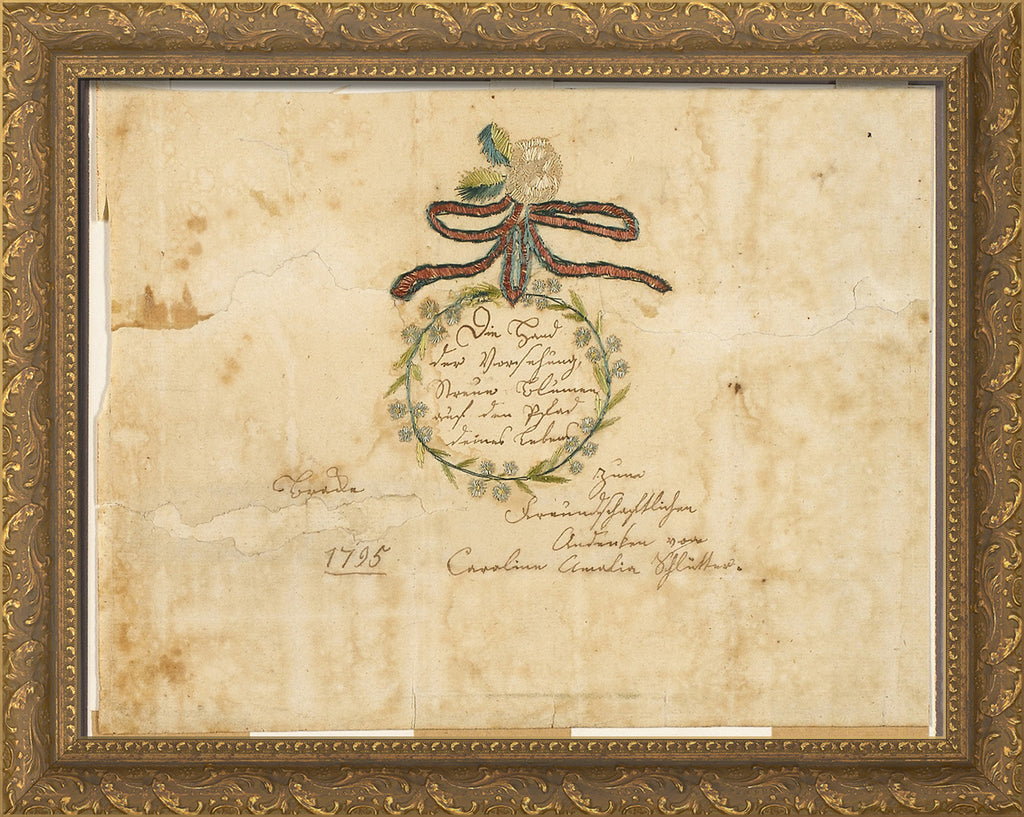 Die Hand
der Vorsehung,
Streue Blumen
auf den Pfad
deines Lebens
zum
Freundschaftlichen
Andenken von
Caroline Amalia Schlütter.
Brake
1795